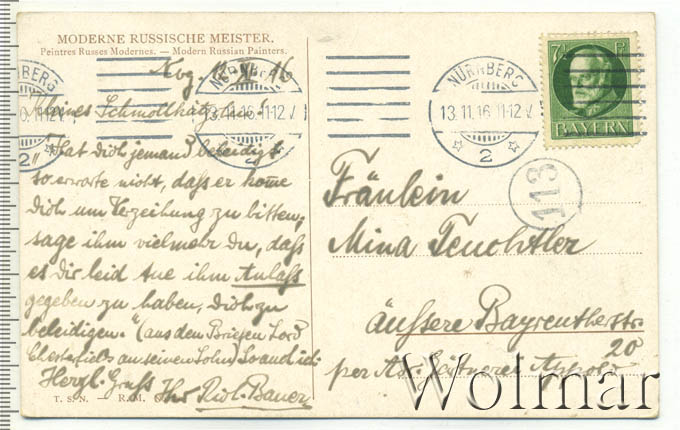 MODERNE RUSSISCHE MEISTER.
Peintres Russes Modernes. — Modern Russian Painters.
Nbg. 16
Kleines Schmollkätzchen!
"Hat dich jemand beleidigt
so erwarte nicht, dass er kom̄e
dich um Verzeihung zu bitten,
sage ihm vielmehr du, dass
es dir leid tue ihm Anlass
gegeben zu haben, dich zu
beleidigen." (aus den Briefen Lord
Chesterfields an seinen Sohn) So auch ich
Herzl. Gruss
Ihr Rud. Bauer
T. S. N. — R. M.
NÜRNBERG
13.11.16 11-12 V.
2
NÜRNBERG
13.11.16 11-12 V.
2
7½ Pf
BAYERN
113
Fräulein
Mina Teuchtler
äussere Bayreutherstr.
20
per Ad.
Wolmar